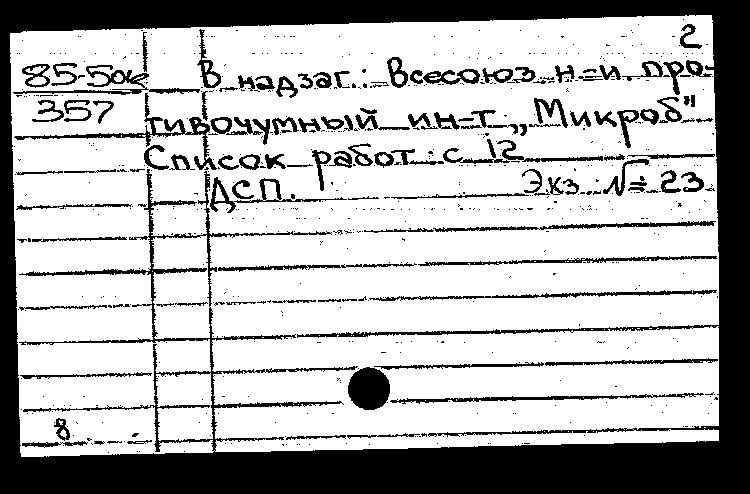 2
85-5ок
357
В надзаг.: Всесоюз. н.-и. про-
тивочумный ин-т „Микроб"
Список работ: с 12
ДСП. Экз. № 23
8